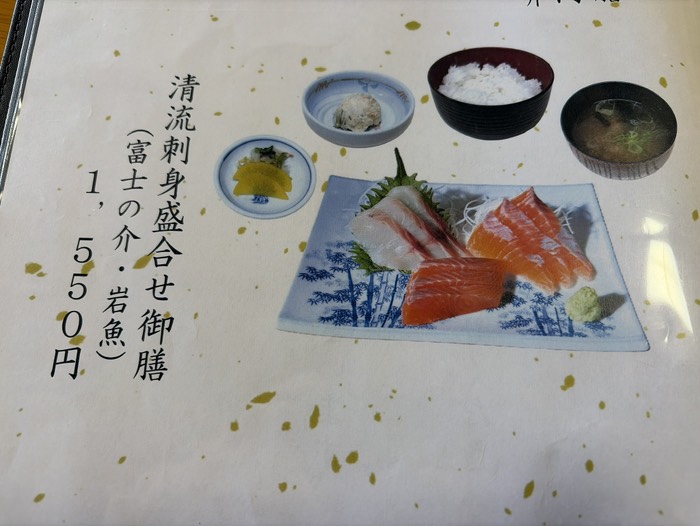 清流刺身盛合せ御膳
（富士の介・岩魚）
１，５５０円